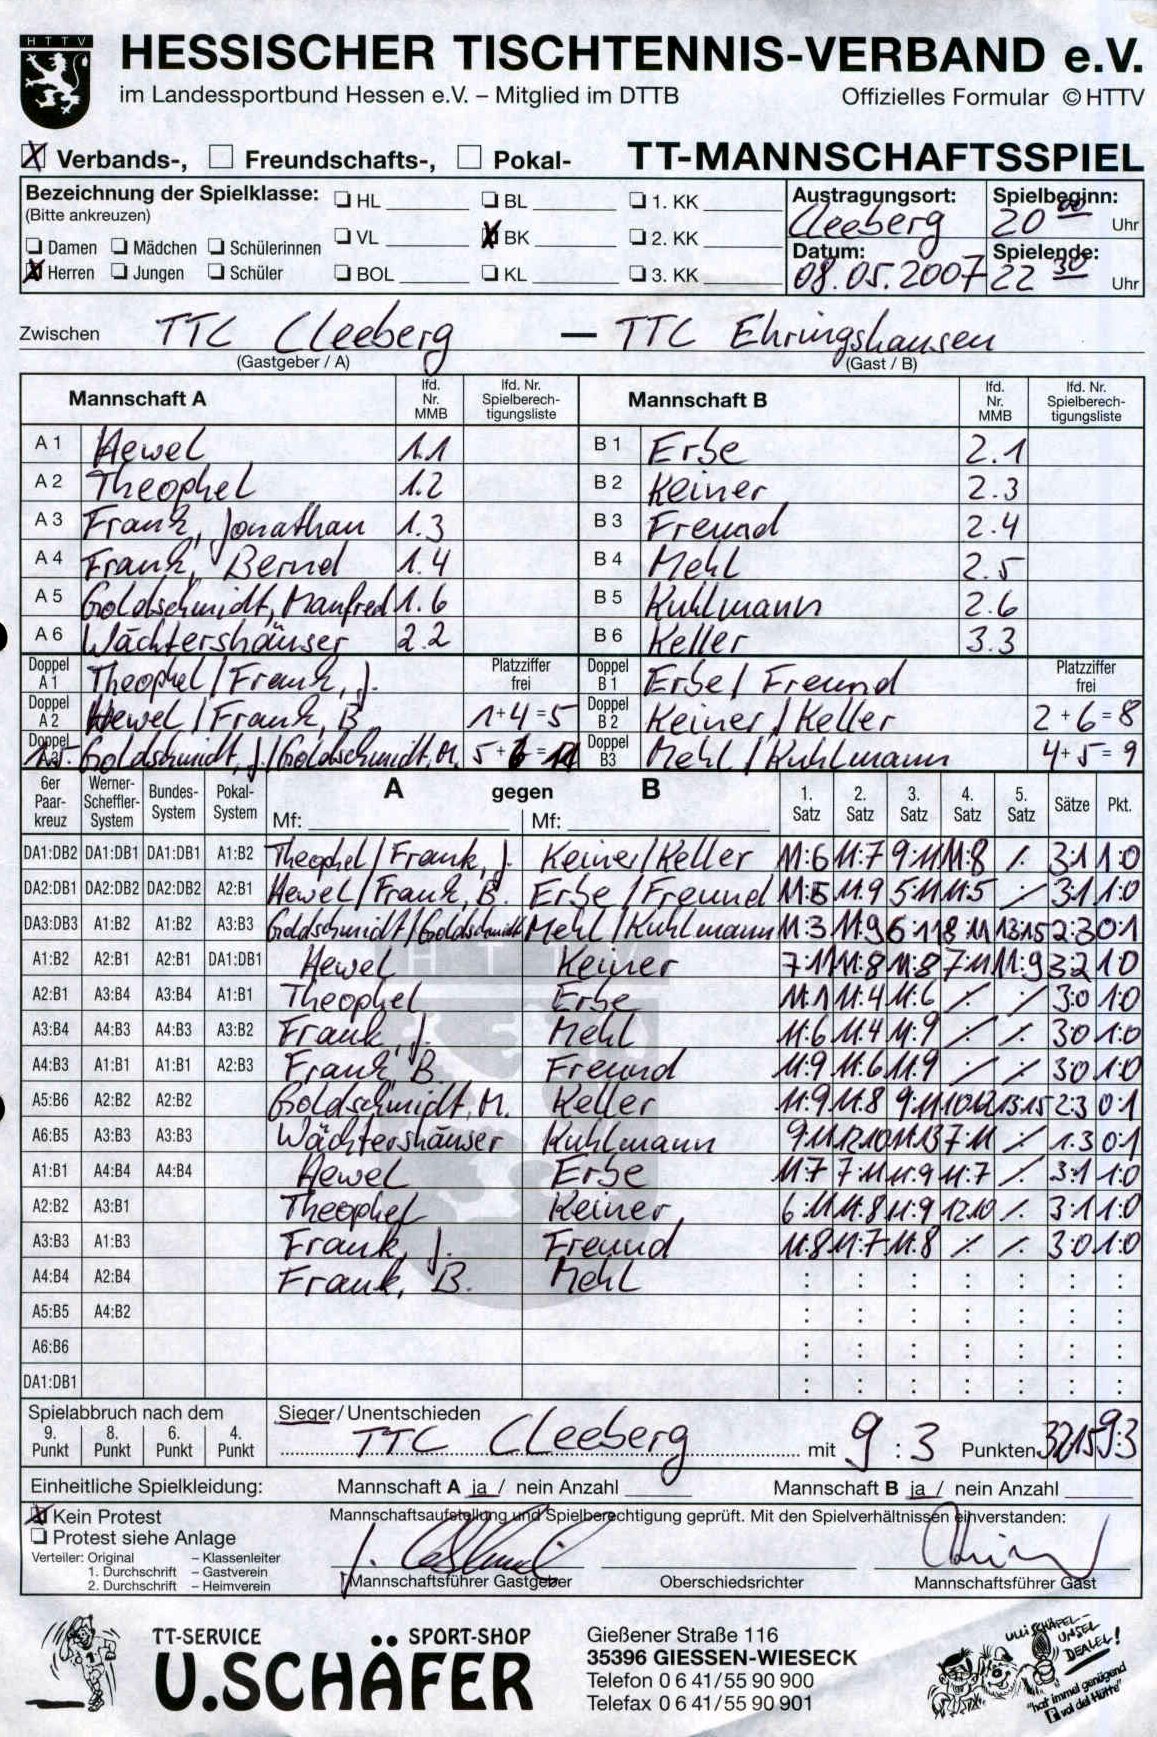 HTTV
HESSISCHER TISCHTENNIS-VERBAND e.V.
im Landessportbund Hessen e.V. – Mitglied im DTTB Offizielles Formular © HTTV
X Verbands-, Freundschafts-, Pokal- TT-MANNSCHAFTSSPIEL
Bezeichnung der Spielklasse: HL BL 1. KK Austragungsort: Spielbeginn:
(Bitte ankreuzen) Cleeberg 20 00 Uhr
Damen Mädchen Schülerinnen VL X BK 2. KK Datum: Spielende:
X Herren Jungen Schüler BOL KL 3. KK 08.05.2007 22 30 Uhr
Zwischen TTC Cleeberg — TTC Ehringshausen
(Gastgeber / A) (Gast / B)
Mannschaft A lfd. Nr. MMB lfd. Nr. Spielberechtigungsliste Mannschaft B lfd. Nr. MMB lfd. Nr. Spielberechtigungsliste
A 1 Hewel 1.1 B 1 Erbe 2.1
A 2 Theophel 1.2 B 2 Keiner 2.3
A 3 Frank, Jonathan 1.3 B 3 Freund 2.4
A 4 Frank, Bernd 1.4 B 4 Mehl 2.5
A 5 Goldschmidt, Manfred 1.6 B 5 Kuhlmann 2.6
A 6 Wächtershäuser 2.2 B 6 Keller 3.3
Doppel A 1 Theophel / Frank, J. Platzziffer frei Doppel B 1 Erbe / Freund Platzziffer frei
Doppel A 2 Hewel / Frank, B. 1+4=5 Doppel B 2 Keiner / Keller 2+6=8
Doppel Goldschmidt, J. / Goldschmidt, M. 5+ = Doppel B3 Mehl / Kuhlmann 4+5=9
6er Paarkreuz Werner-Scheffler-System Bundes-System Pokal-System A gegen B Mf: Mf: 1. Satz 2. Satz 3. Satz 4. Satz 5. Satz Sätze Pkt.
DA1:DB2 DA1:DB1 DA1:DB1 A1:B2 Theophel / Frank, J. Keiner / Keller 11:6 11:7 9:11 11:8 ⁒ 3:1 1:0
DA2:DB1 DA2:DB2 DA2:DB2 A2:B1 Hewel / Frank, B. Erbe / Freund 11:5 11:9 5:11 11:5 ⁒ 3:1 1:0
DA3:DB3 A1:B2 A1:B2 A3:B3 Goldschmidt / Goldschmidt Mehl / Kuhlmann 11:3 11:9 6:11 8:11 13:15 2:3 0:1
A1:B2 A2:B1 A2:B1 DA1:DB1 Hewel Keiner 7:11 11:8 11:8 7:11 11:9 3:2 1:0
A2:B1 A3:B4 A3:B4 A1:B1 Theophel Erbe 11:1 11:4 11:6 ⁒ ⁒ 3:0 1:0
A3:B4 A4:B3 A4:B3 A3:B2 Frank, J. Mehl 11:6 11:4 11:9 ⁒ ⁒ 3:0 1:0
A4:B3 A1:B1 A1:B1 A2:B3 Frank B. Freund 11:9 11:6 11:9 ⁒ ⁒ 3:0 1:0
A5:B6 A2:B2 A2:B2 Goldschmidt, M. Keller 11:9 11:8 9:11 10:12 13:15 2:3 0:1
A6:B5 A3:B3 A3:B3 Wächtershäuser Kuhlmann 9:11 12:10 11:13 7:11 ⁒ 1:3 0:1
A1:B1 A4:B4 A4:B4 Hewel Erbe 11:7 7:11 11:9 11:7 ⁒ 3:1 1:0
A2:B2 A3:B1 Theophel Keiner 6:11 11:8 11:9 12:10 ⁒ 3:1 1:0
A3:B3 A1:B3 Frank, J. Freund 11:8 11:7 11:8 ⁒ ⁒ 3:0 1:0
A4:B4 A2:B4 Frank, B. Mehl : : : : : : :
A5:B5 A4:B2 : : : : : : :
A6:B6 : : : : : : :
DA1:DB1 : : : : : : :
Spielabbruch nach dem Sieger/Unentschieden
9. Punkt 8. Punkt 6. Punkt 4. Punkt TTC Cleeberg mit 9 : 3 Punkten 32:15 9:3
Einheitliche Spielkleidung: Mannschaft A ja / nein Anzahl Mannschaft B ja / nein Anzahl
X Kein Protest Mannschaftsaufstellung und Spielberechtigung geprüft. Mit den Spielverhältnissen einverstanden:
Protest siehe Anlage
Verteiler: Original – Klassenleiter
1. Durchschrift – Gastverein
2. Durchschrift – Heimverein
Mannschaftsführer Gastgeber Oberschiedsrichter Mannschaftsführer Gast
TT-SERVICE SPORT-SHOP
U.SCHÄFER
Gießener Straße 116
35396 GIESSEN-WIESECK
Telefon 0 6 41/55 90 900
Telefax 0 6 41/55 90 901
ULLI SCHÄFER-
UNSEL
DEALEL!
"hat immel genügend
vol del Hütte"